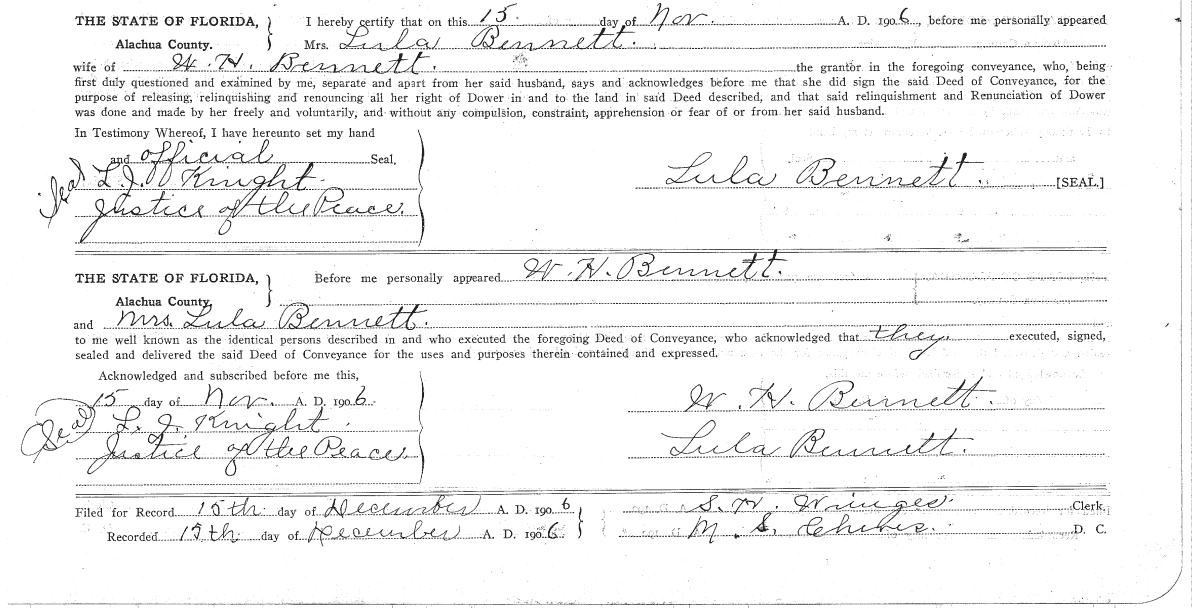 THE STATE OF FLORIDA, } I hereby certify that on this 15. day of Nov. A. D. 1906, before me personally appeared
Alachua County. Mrs. Lula Bennett.
wife of W. H. Bennett. the grantor in the foregoing conveyance, who, being
first duly questioned and examined by me, separate and apart from her said husband, says and acknowledges before me that she did sign the said Deed of Conveyance, for the
purpose of releasing, relinquishing and renouncing all her right of Dower in and to the land in said Deed described, and that said relinquishment and Renunciation of Dower
was done and made by her freely and voluntarily, and without any compulsion, constraint, apprehension or fear of or from her said husband.
In Testimony Whereof, I have hereunto set my hand
and official Seal,
(Seal) L. J. Knight. Lula Bennett. [SEAL.]
Justice of the Peace.
THE STATE OF FLORIDA, } Before me personally appeared W. H. Bennett.
Alachua County,
and Mrs. Lula Bennett.
to me well known as the identical persons described in and who executed the foregoing Deed of Conveyance, who acknowledged that they executed, signed,
sealed and delivered the said Deed of Conveyance for the uses and purposes therein contained and expressed.
Acknowledged and subscribed before me this,
15 day of Nov. A. D. 1906. W. H. Bennett.
(Seal) L. J. Knight.
Justice of the Peace. Lula Bennett.
Filed for Record 15th day of December A. D. 1906 } S. H. Wienges Clerk,
Recorded 15th day of December A. D. 1906. M. S. D. C.